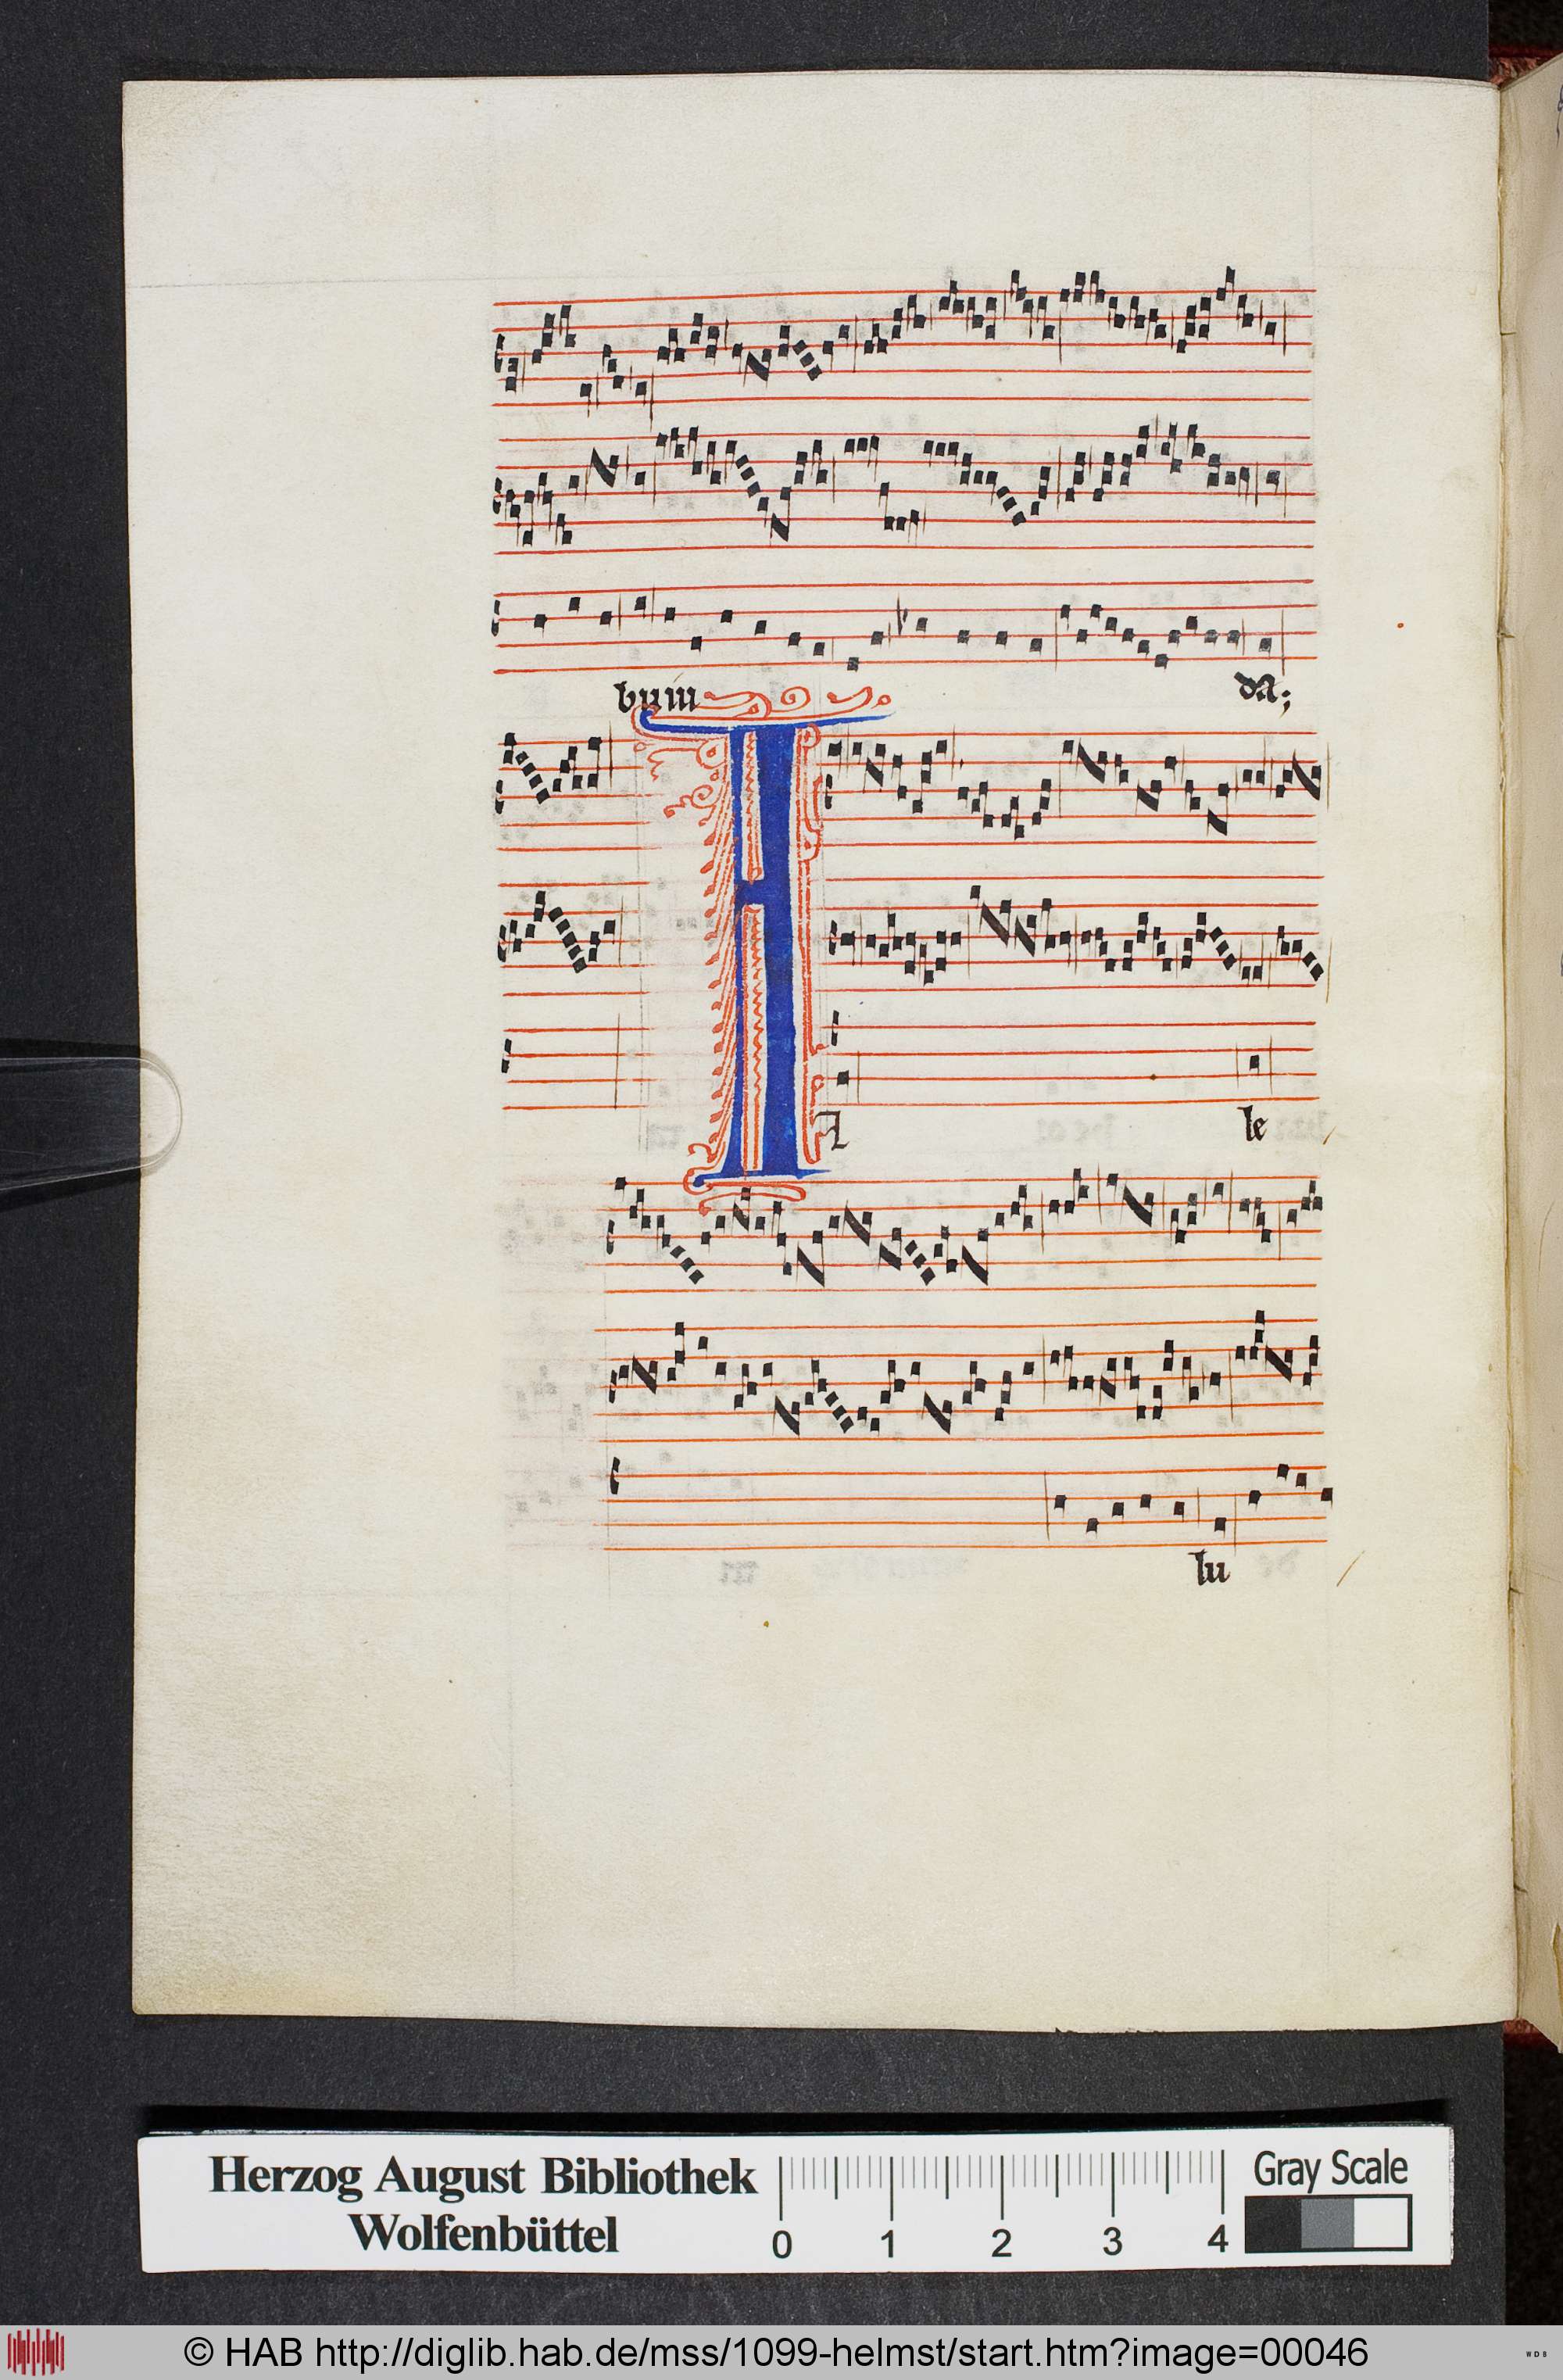 bum da;
A le
lu
Herzog August Bibliothek
Wolfenbüttel
0 1 2 3 4
Gray Scale
© HAB http://diglib.hab.de/mss/1099-helmst/start.htm?image=00046
WDB